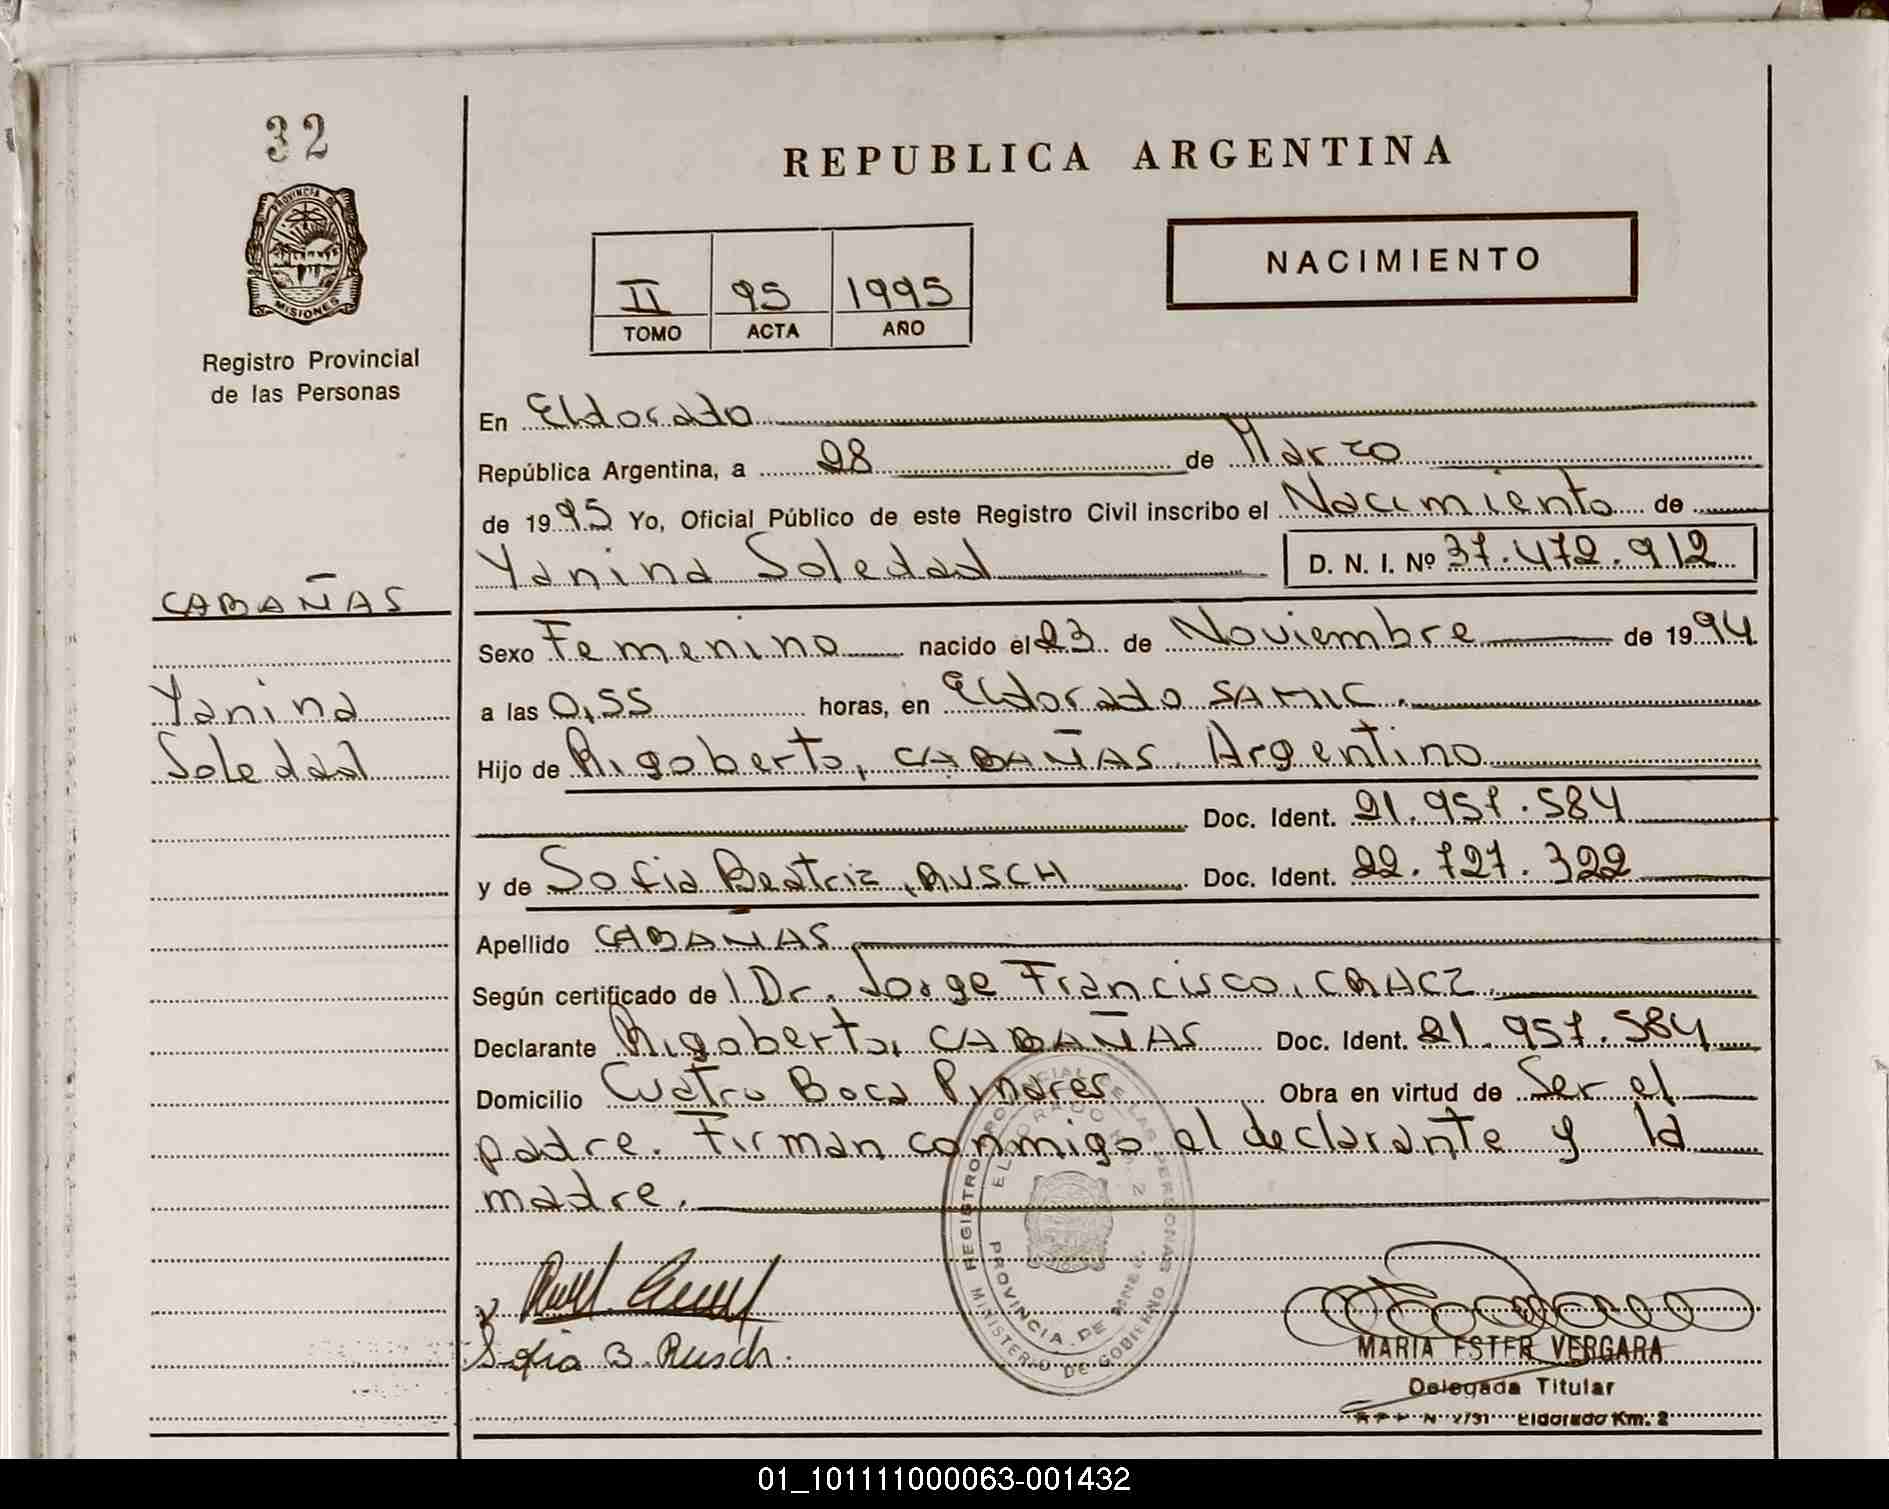 32
PROVINCIA DE
MISIONES
Registro Provincial
de las Personas
CABAÑAS
Yanina
Soledad
REPUBLICA ARGENTINA
NACIMIENTO
II 95 1995
TOMO ACTA AÑO
En Eldorado
República Argentina, a 28 de Marzo
de 1995 Yo, Oficial Público de este Registro Civil inscribo el Nacimiento de
Yanina Soledad D. N. I. Nº 37.472.912
Sexo Femenino nacido el 23 de Noviembre de 1994
a las 0,55 horas, en Eldorado SAMIC.
Hijo de Rigoberto, CABAÑAS. Argentino
Doc. Ident. 21.957.584
y de Sofia Beatriz, RUSCH Doc. Ident. 22.727.322
Apellido CABAÑAS
Según certificado del Dr. Jorge Francisco, CRACZ.
Declarante Rigoberto, CABAÑAS Doc. Ident. 21.957.584
Domicilio Cuatro Boca Pinares Obra en virtud de Ser el
padre. Firman conmigo el declarante y la
madre.
REGISTRO PROVINCIAL DE LAS PERSONAS
MINISTERIO DE GOBIERNO
ELDORADO KM. 2
PROVINCIA DE MNES.
Sofia B. Rusch.
MARIA ESTER VERGARA
Delegada Titular
Eldorado Km. 2
01_101111000063-001432